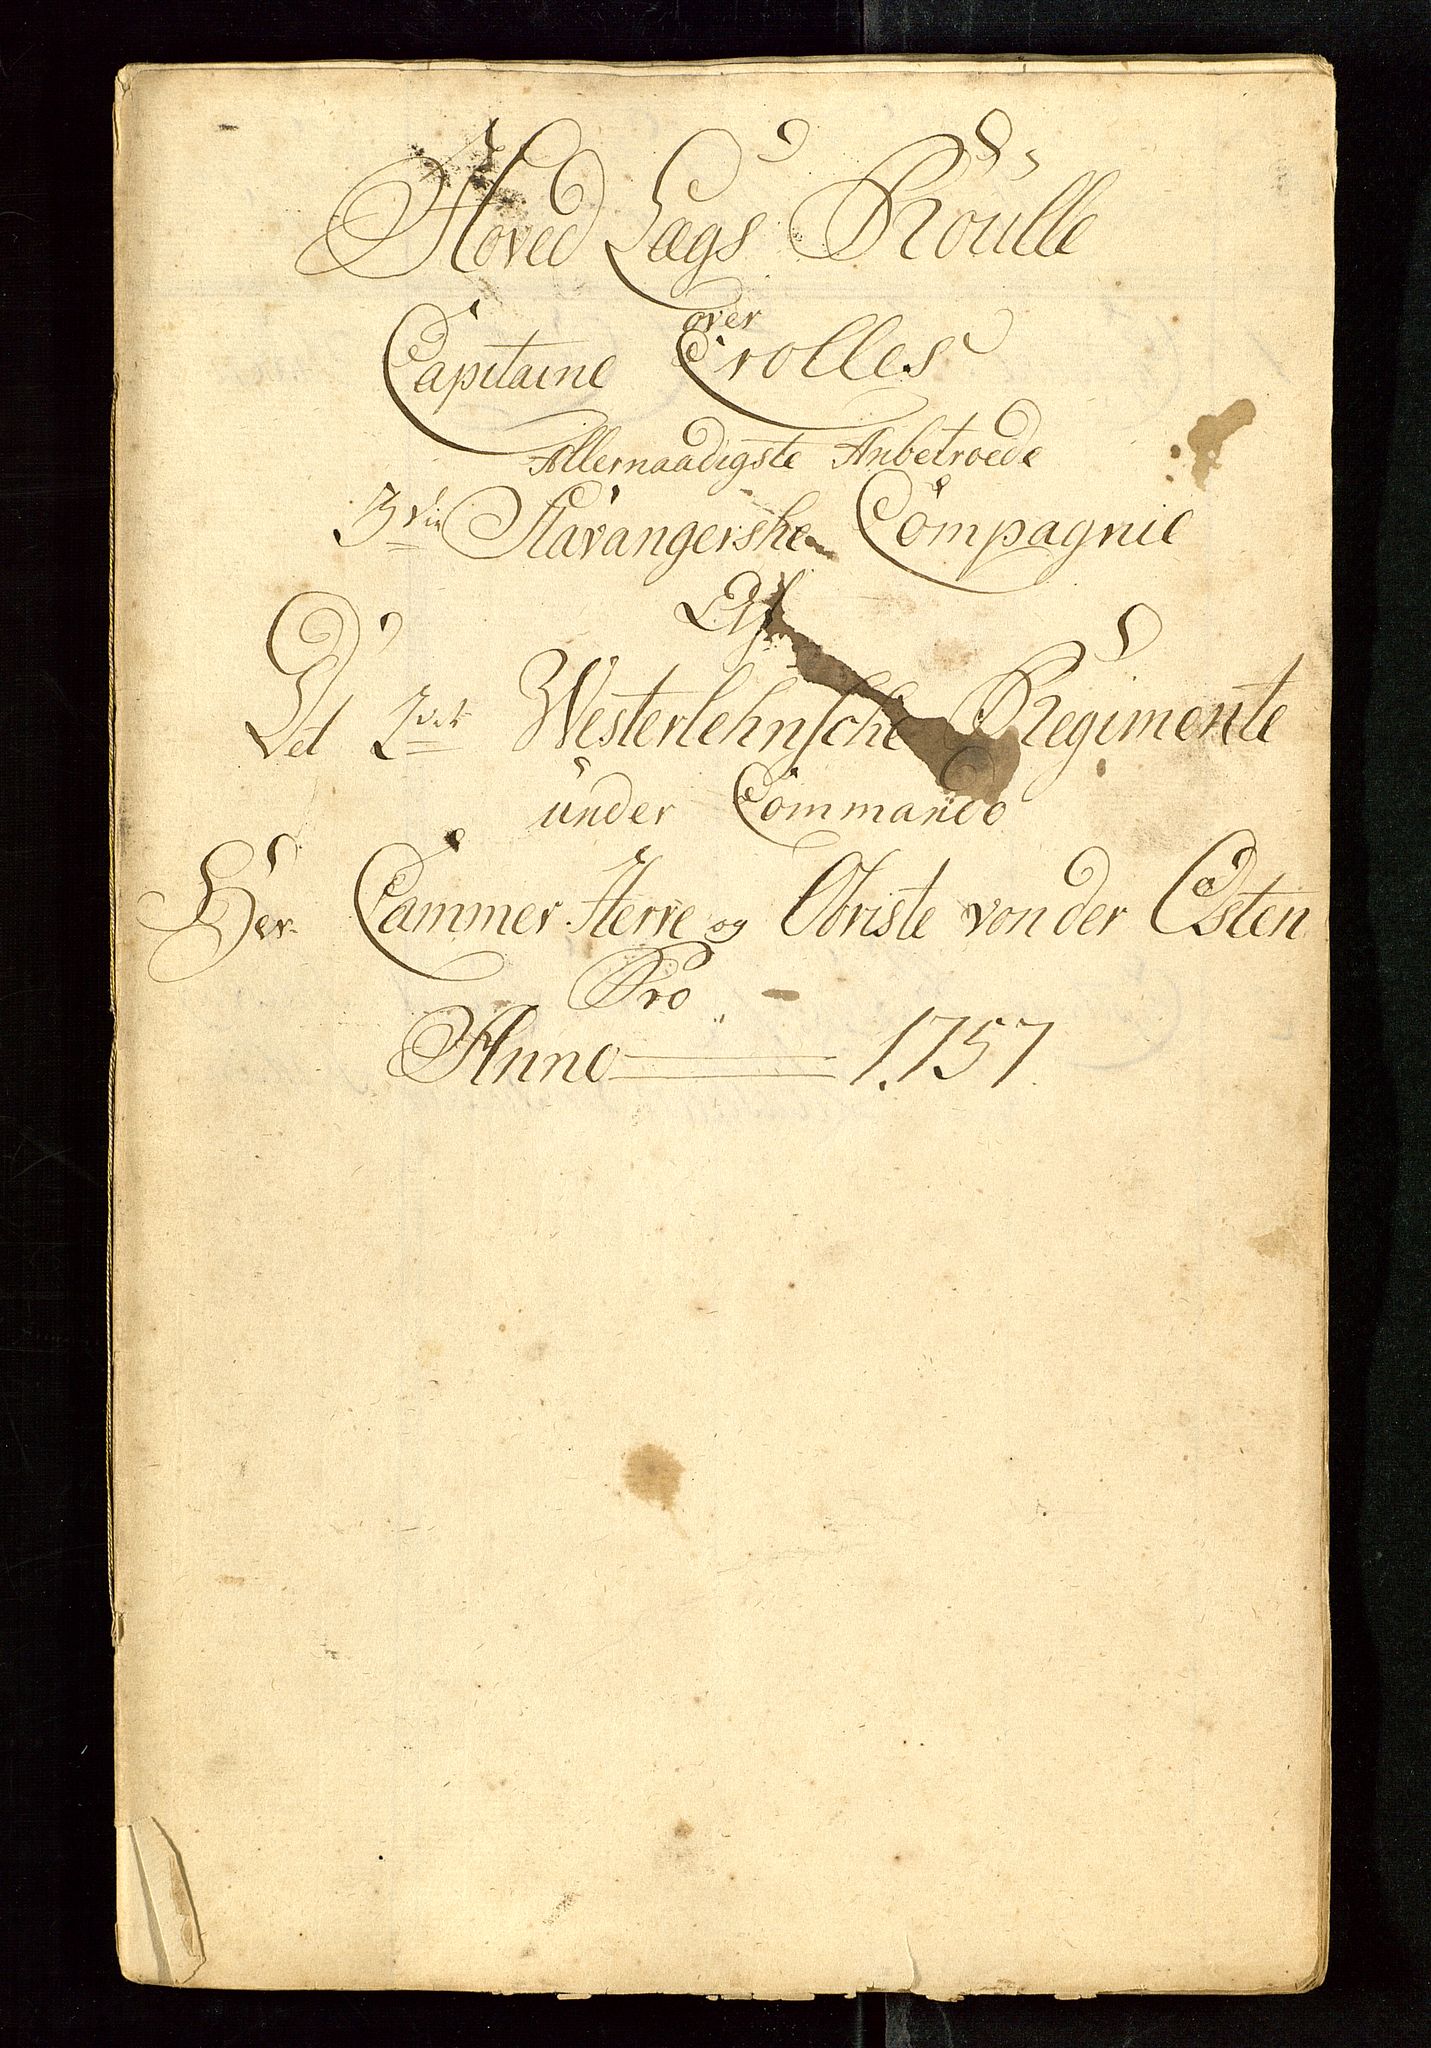 Hoved Lægs Roulle
over
Capitaine Crolles
Allernaadigste Anbetroede
3die Stavangerske Compagnie
Af
Det 2det Westerlehnsche Regimente
under Commando
Her Cammer Herre og Obriste von der Osten
Pro
Anno 1757